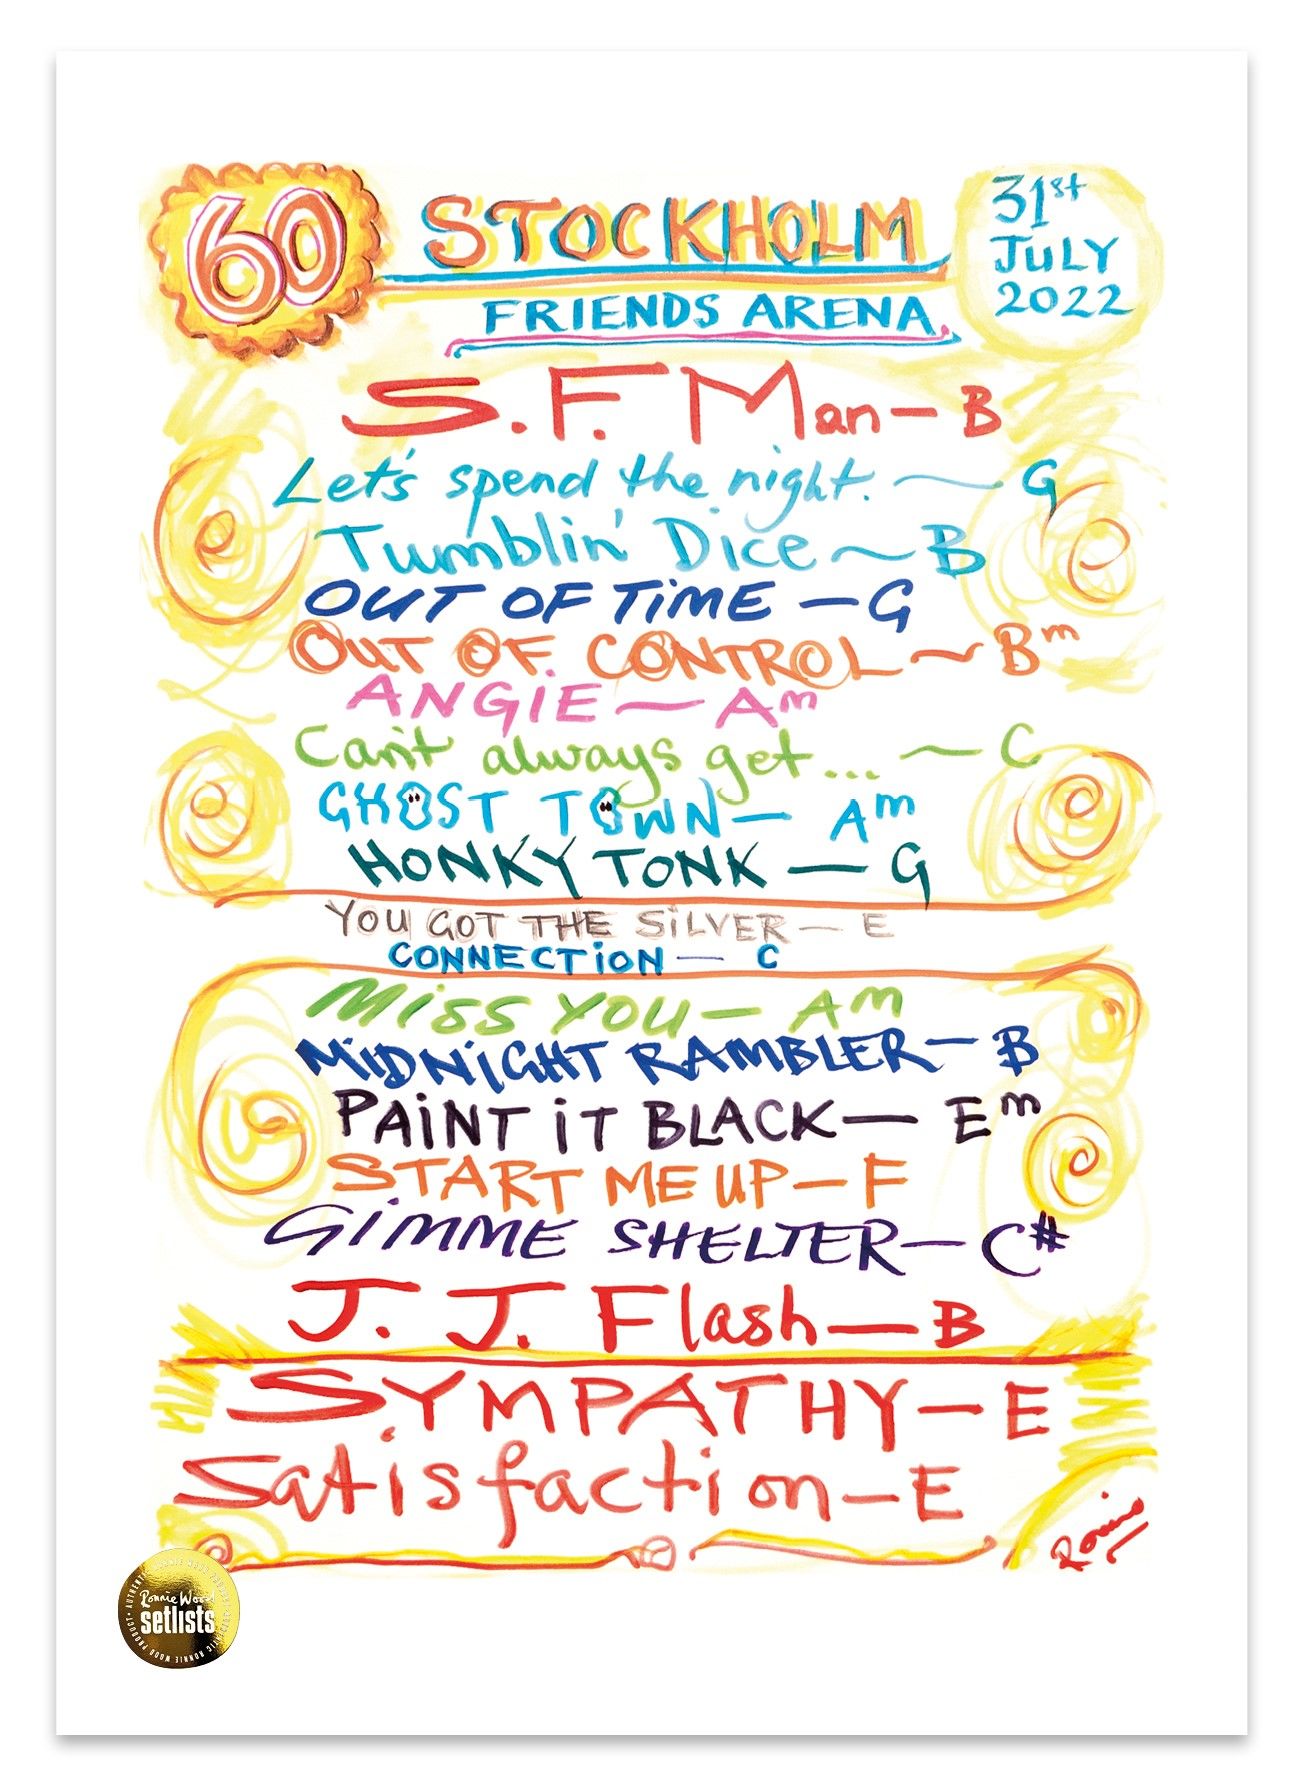 60
STOCKHOLM
FRIENDS ARENA
31st
JULY
2022
S.F. Man — B
Let's spend the night. ~ G
Tumblin' Dice ~ B
OUT OF TiME — G
OUT OF CONTROL ~ Bm
ANGiE ~ Am
Can't always get... ~ C
GHOST TOWN — Am
HONKY TONK — G
YOU GOT THE SiLVER — E
CONNECTiON — C
MiSS YOU — Am
MiDNiGHT RAMBLER — B
PAiNT iT BLACK — Em
START ME UP — F
GiMME SHELTER — C#
J. J. Flash — B
SYMPATHY — E
Satisfaction — E
Ronnie
Ronnie Wood
setlists